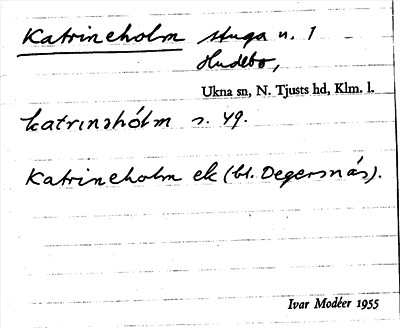 Katrineholm stuga u. 1
Hudebo,
Ukna sn, N. Tjusts hd, Klm. l.
katrinəhólm s. 49.
Katrineholm ek (bl. Degersnäs).
Ivar Modéer 1955